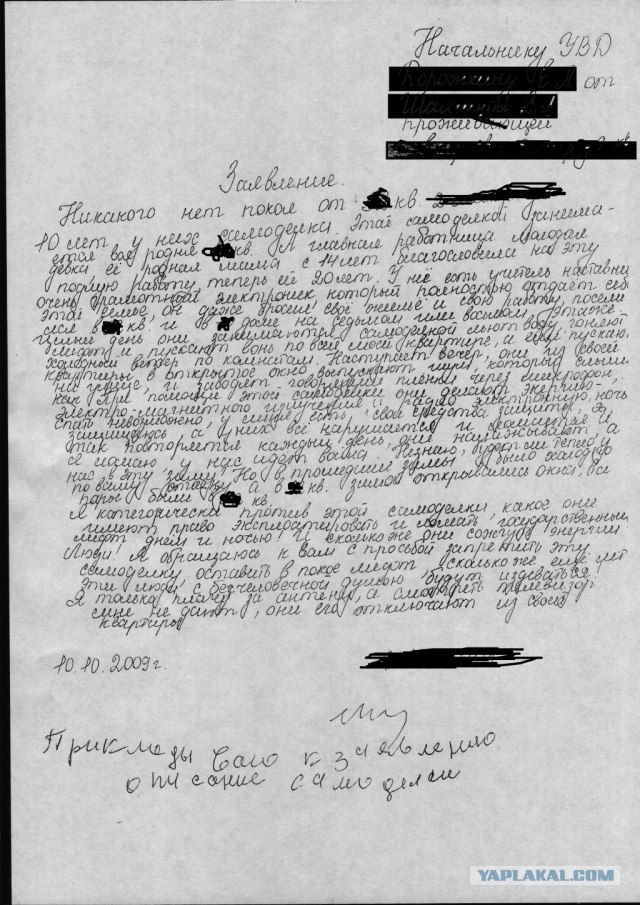 Начальнику УВД
от
проживающей
Заявление.
Никакого нет покоя от кв.
10 лет у них самоделка. Этой самоделкой занима-
ется вся родня кв. А главная работница молодая
девка её родная мама с 14 лет благословила на эту
подлую работу, теперь ей 20 лет. У неё есть учитель наставни
очень грамотный электроник который полностью отдаёт себ
этой семье, он даже бросил своё жильё и свою работу, посели
лся в кв. и в доме на седьмом или восьмом этаже
целый день они занимаются самоделкой льют воду, гоняют
лифт и пускают вонь по всей моей квартире, а ещё пускаю
холодный ветер по комнатам. Наступает вечер, они из своей
квартиры в открытое окно выпускают шум, который слыш
на улице, и заводят говорящие плёнки через микрофон,
как при помощи этой самоделки они делают энергию-
электро-магнитного излучения и радио электронную, ночь
спать невозможно, у меня есть свои средства защиты, я
защищаюсь, а у них всё нарушается и ломается и
так повторяется каждый день, они налаживают а
я ломаю у нас идёт война. Незнаю, будет ли тепло у
нас в эту зиму. Но в прошлые зимы было холодно
по всему и в кв. зимой открывались окна, все
были кв.
Я категорически против этой самоделки, какое они
имеют право эксплуатировать и ломать государственный
лифт днём и ночью! И сколько же они сожгут энергии
Люди! Я обращаюсь к вам с просьбой запретить эту
самоделку, оставить в покое лифт сколько же ещё лет
эти люди с безчеловечной душою будут издеваться!
Я только плачу за антену, а смотреть телевизор
мне не дают, они его отключают из своей
квартиры
10.10.2009г.
к заявлению
описание самоделки
YAPLAKAL.COM